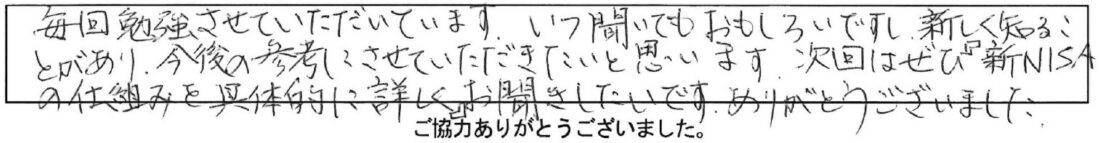 毎回勉強させていただいています。いつ聞いてもおもしろいですし、新しく知るこ
とがあり、今後の参考にさせていただきたいと思います。次回はぜひ『新NISA
の仕組みを具体的に詳しく』お聞きしたいです。ありがとうございました。
ご協力ありがとうございました。